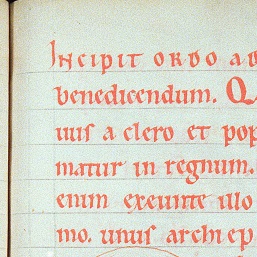 INCIPIT ORDO AD
benedicendum. Q
uus a clero et pop
matur in regnum.
enim exeunte illo
mo. unus archiep